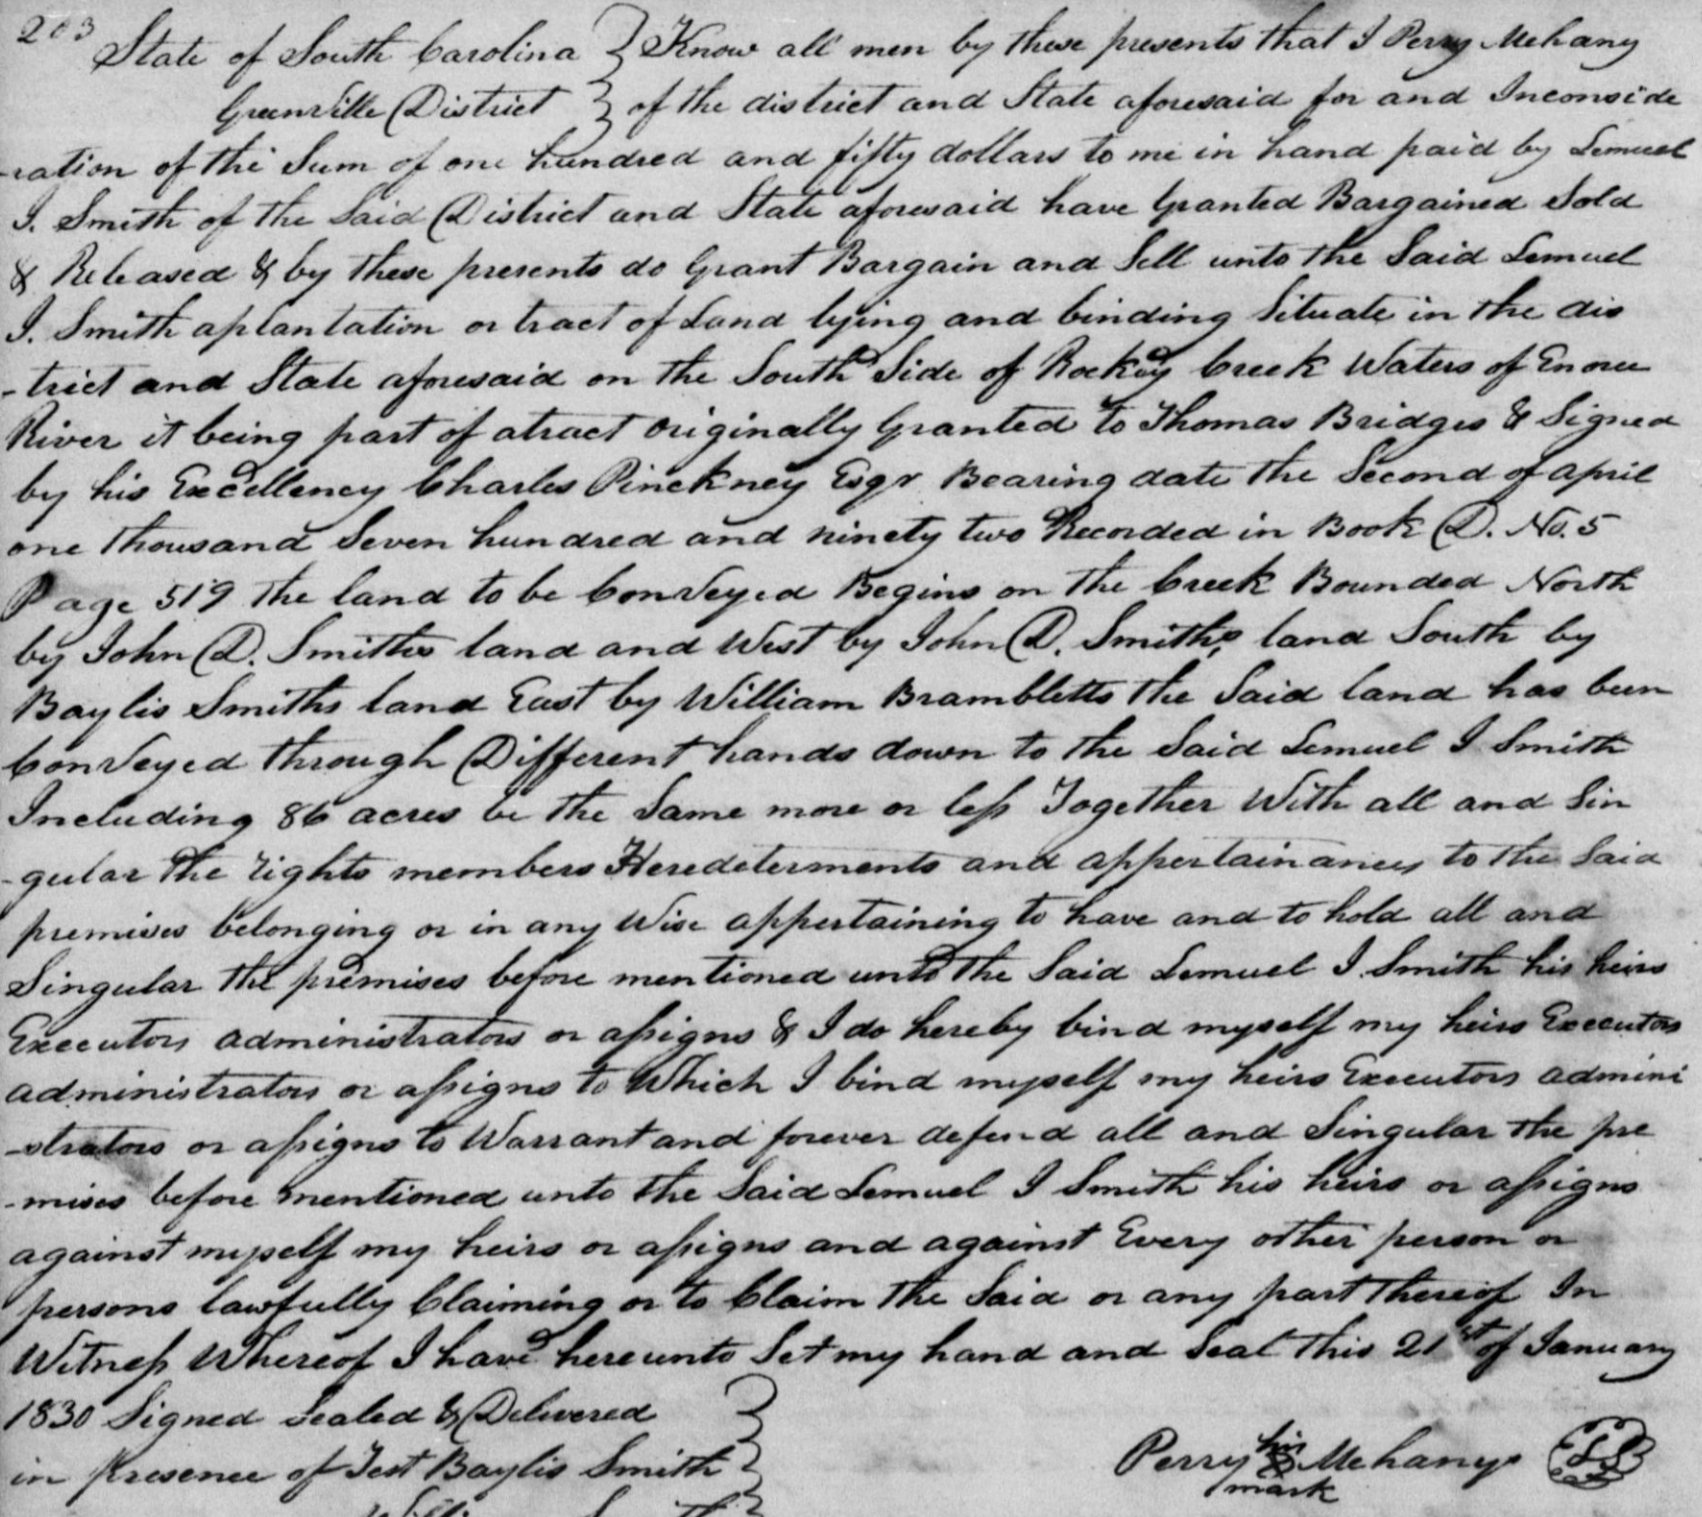 203 State of South Carolina } Know all men by these presents that I Perry Mehany
Greenville District } of the district and State aforesaid for and Inconside
-ration of the Sum of one hundred and fifty dollars to me in hand paid by Lemuel
I. Smith of the Said District and State aforesaid have Granted Bargained Sold
& Released & by these presents do Grant Bargain and Sell unto the Said Lemuel
I. Smith aplantation or tract of Land lying and binding Situate in the dis
-trict and State aforesaid on the South Side of Rockey Creek Waters of Enoree
River it being part of atract originally Granted to Thomas Bridges & Signed
by his Excellency Charles Pinckney Esqr Bearing date the Second of april
one thousand Seven hundred and ninety two Recorded in Book D. No. 5
Page 519 the land to be Conveyed Begins on the Creek Bounded North
by John D. Smiths land and West by John D. Smiths land South by
Baylis Smiths land East by William Brambletts the Said land has been
Conveyed through Different hands down to the Said Lemuel I Smith
Including 86 acres be the Same more or less Together With all and Sin
-gular the rights members Heredeterments and appertainances to the Said
premises belonging or in any Wise appertaining to have and to hold all and
Singular the premises before mentioned unto the Said Lemuel I. Smith his heirs
Executors administrators or assigns & I do hereby bind myself my heirs Executors
administrators or assigns to Which I bind myself my heirs Executors admini
-strators or assigns to Warrant and forever defend all and Singular the pre
-mises before mentioned unto the Said Lemuel I Smith his heirs or assigns
against myself my heirs or assigns and against Every other person or
persons lawfully Claiming or to Claim the Said or any part thereof In
Witness Whereof I have hereunto Set my hand and Seal this 21st of January
1830 Signed Sealed & Delivered }
in presence of Test Baylis Smith } Perry his Mehany LS
mark